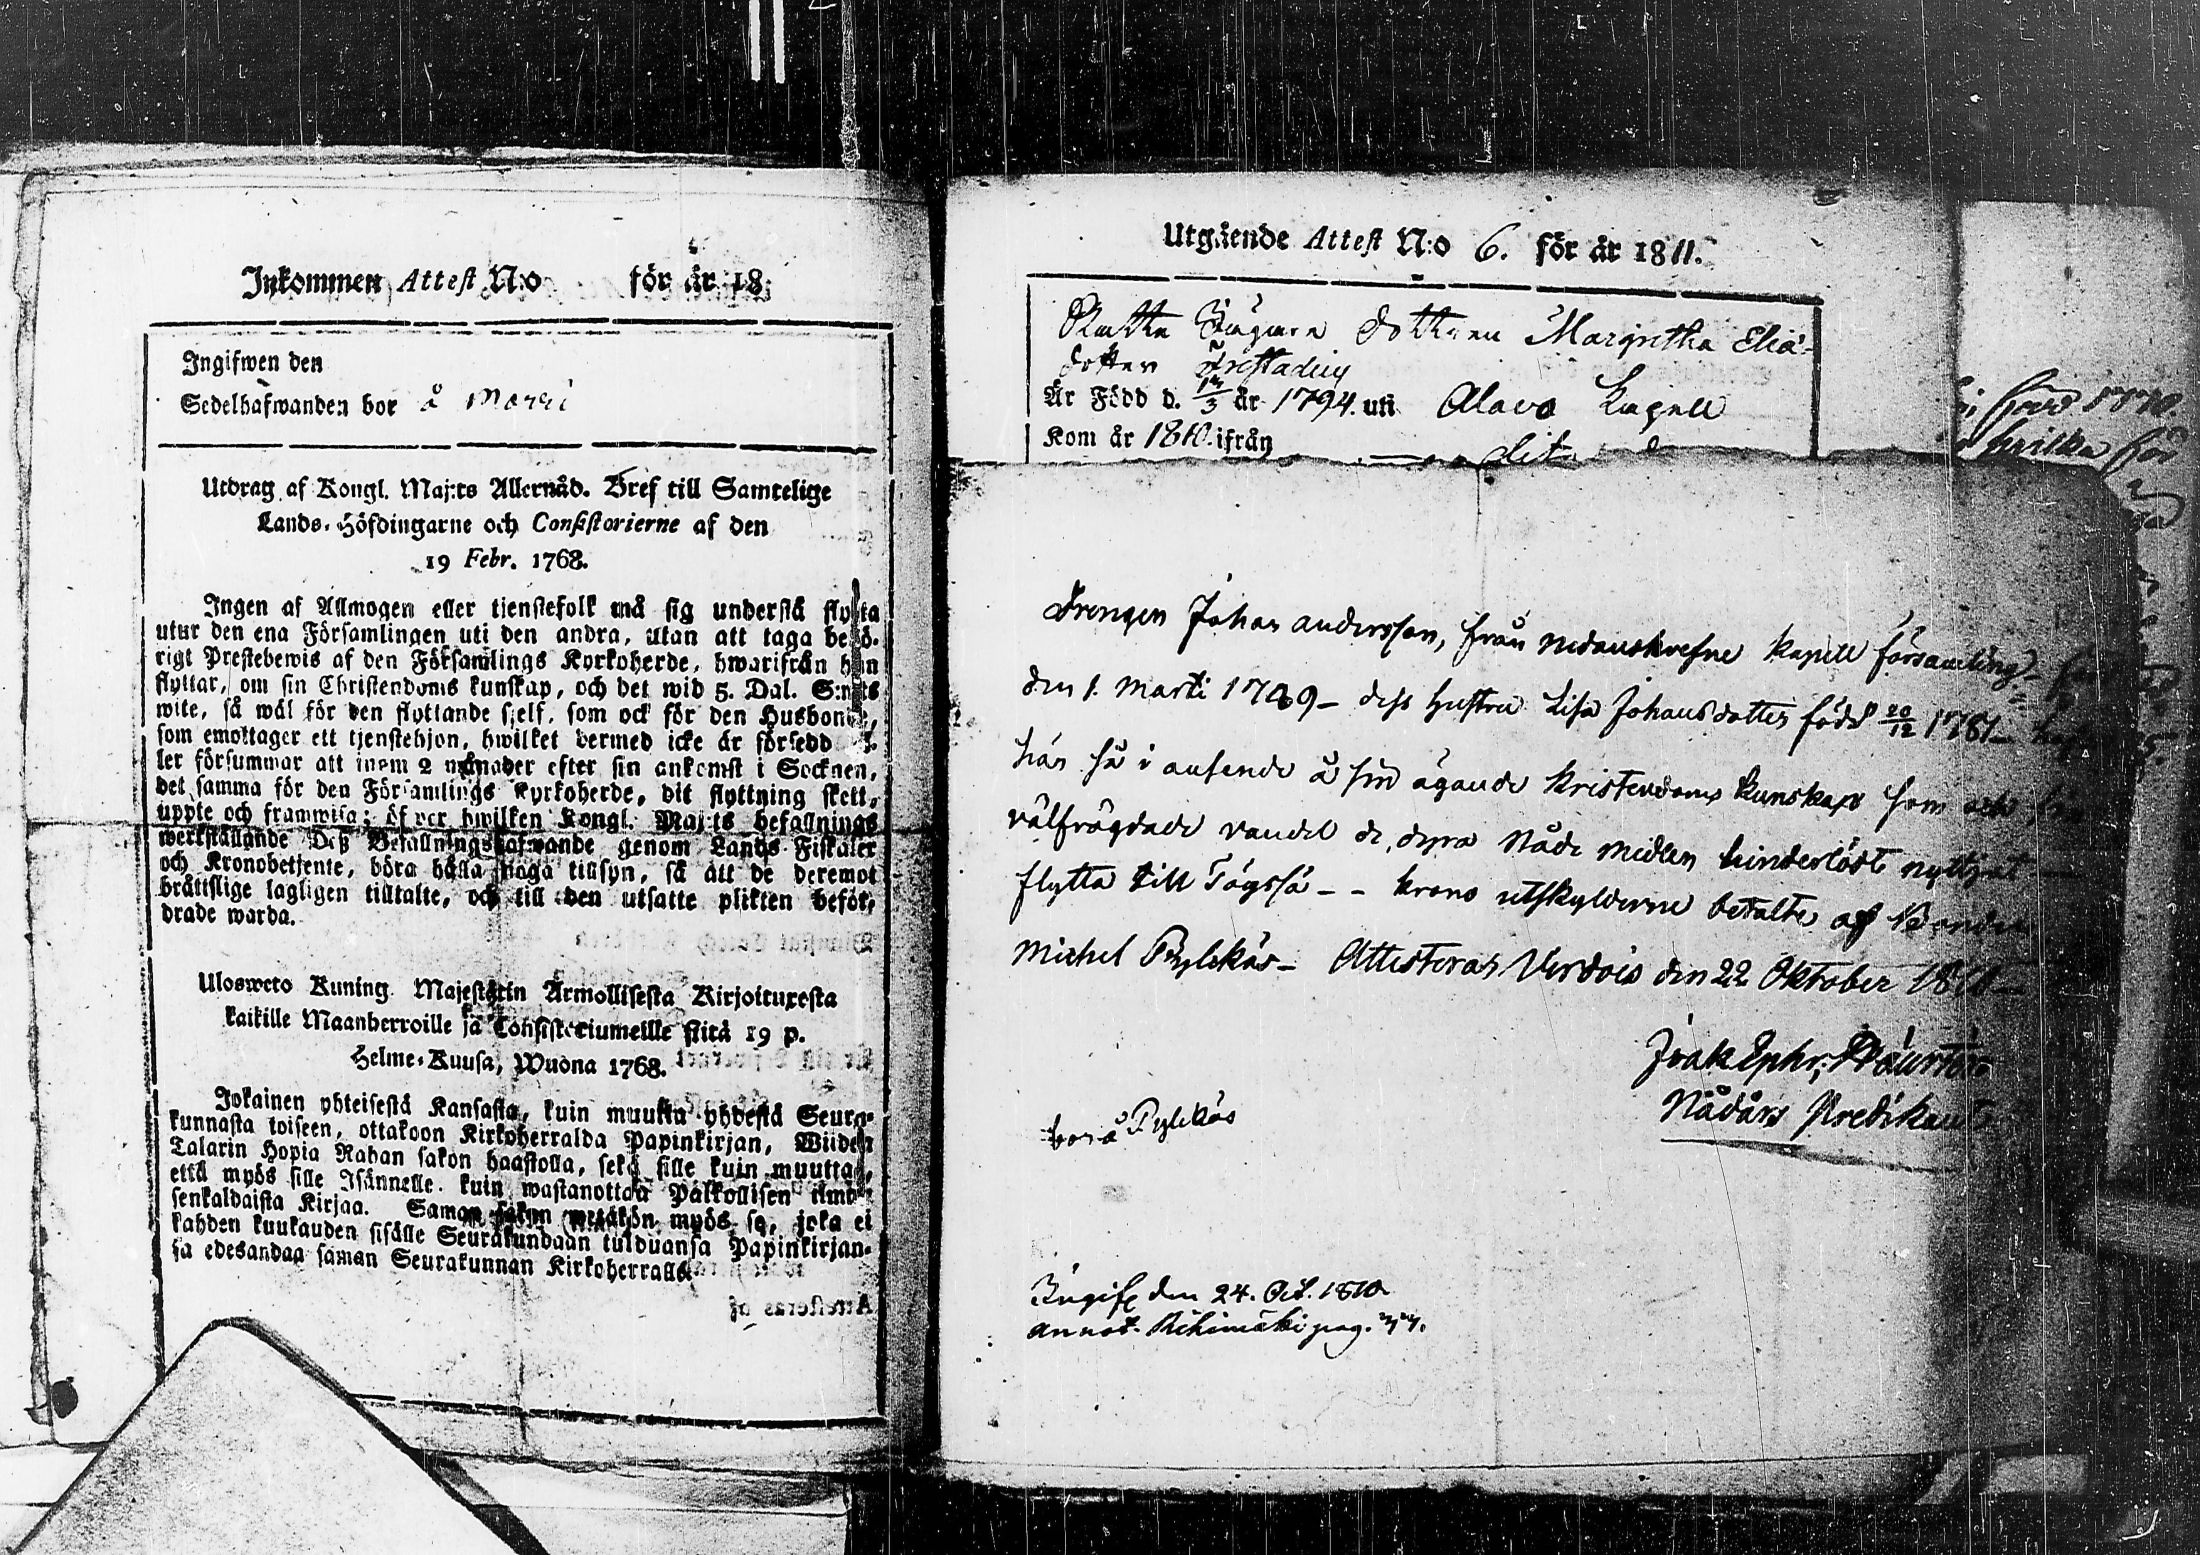 Inkommen Attest N:o för år 18
Ingifwen den
Sedelhafwanden bor å Marri
Utdrag af Kongl. Maj:ts Allernåd. Bref till Samtelige
Lands-Höfdingarne och Consistorierne af den
19 Febr. 1768.
Ingen af Allmogen eller tienstefolk må sig understå flytta
utur den ena Församlingen uti den andra, utan att taga behö-
rigt Prestebewis af den Församlings Kyrkoherde, hwarifrån han
flyttar, om sin Christendoms kunskap, och det wid 5. Dal. S:mts
wite, så wäl för den flyttande sjelf, som ock för den Husbonde,
som emottager ett tjenstehjon, hwilket dermed icke är försedd
ler försummar att inom 2 månader efter sin ankomst i Socknen,
det samma för den Församlings Kyrkoherde, dit flyttning skett,
uppte och framwisa; öfwer hwilken Kongl. Maj:ts befallnings
werkställande Deß Befallningshafwande genom Lands-Fiskaler
och Kronobetjente, böra hålla noga tillsyn, så att de deremot
bråttslige lagligen tilltalte, och till den utsatte plikten befor-
drade warda.
Ulosweto Kuning. Majestätin Armollisesta Kirjoituxesta
kaikille Maanherroille ja Consistoriumeille siitä 19 p.
Helme-Kuusa, Wuona 1768.
Jokainen yhteisestä Kansasta, kuin muutta yhdestä Seura-
kunnasta toiseen, ottakoon Kirkoherralda Papinkirjan, Wiiden
Talarin Hopia Rahan sakon haastolla, sekä sille kuin muuttaa,
että myös sille Isännelle, kuin wastanottaa Palkollisen ilman
senkaldaista Kirjaa. Saman sakon wetäkön myös se, joka ei
kahden kuukauden sisälle Seurakundaan tulduansa Papinkirjan-
sa edesandaa saman Seurakunnan Kirkoherralle.
Utgående Attest N:o 6. för år 1811.
dottren Margretha Elia-
dotter
Är Född d. 3 år 1794. uti Alavo Kapell
Kom år 1810. ifrån dito
Drengen Johan andersson, från nedanskrefne kapell församling
den 1. Marti 1769 – dess hustru Lisa Johansdotter född 20/12 1781 –
här så i anseende å sin ägande kristendoms kunskap som och
välfrägdade vandel de dyra Nåde medlen hinderlöst nyttjat –
flytta till Tögsså – – krono utskylderne betalte af Bonden
Michel Pylekäs – Attesteras Virdois den 22 Oktober 1810 –
Isak Ephr:
Nådårs Predikant
bor å Pylekäs
Ingifv den 24. Oct. 1810
annot. Rihimäki pag.
född 1770.
hvilka för